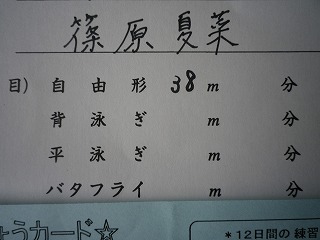 篠原夏菜
目) 自由形 38 m 分
背泳ぎ m 分
平泳ぎ m 分
バタフライ m 分
ょうカード☆
*12日間の練習